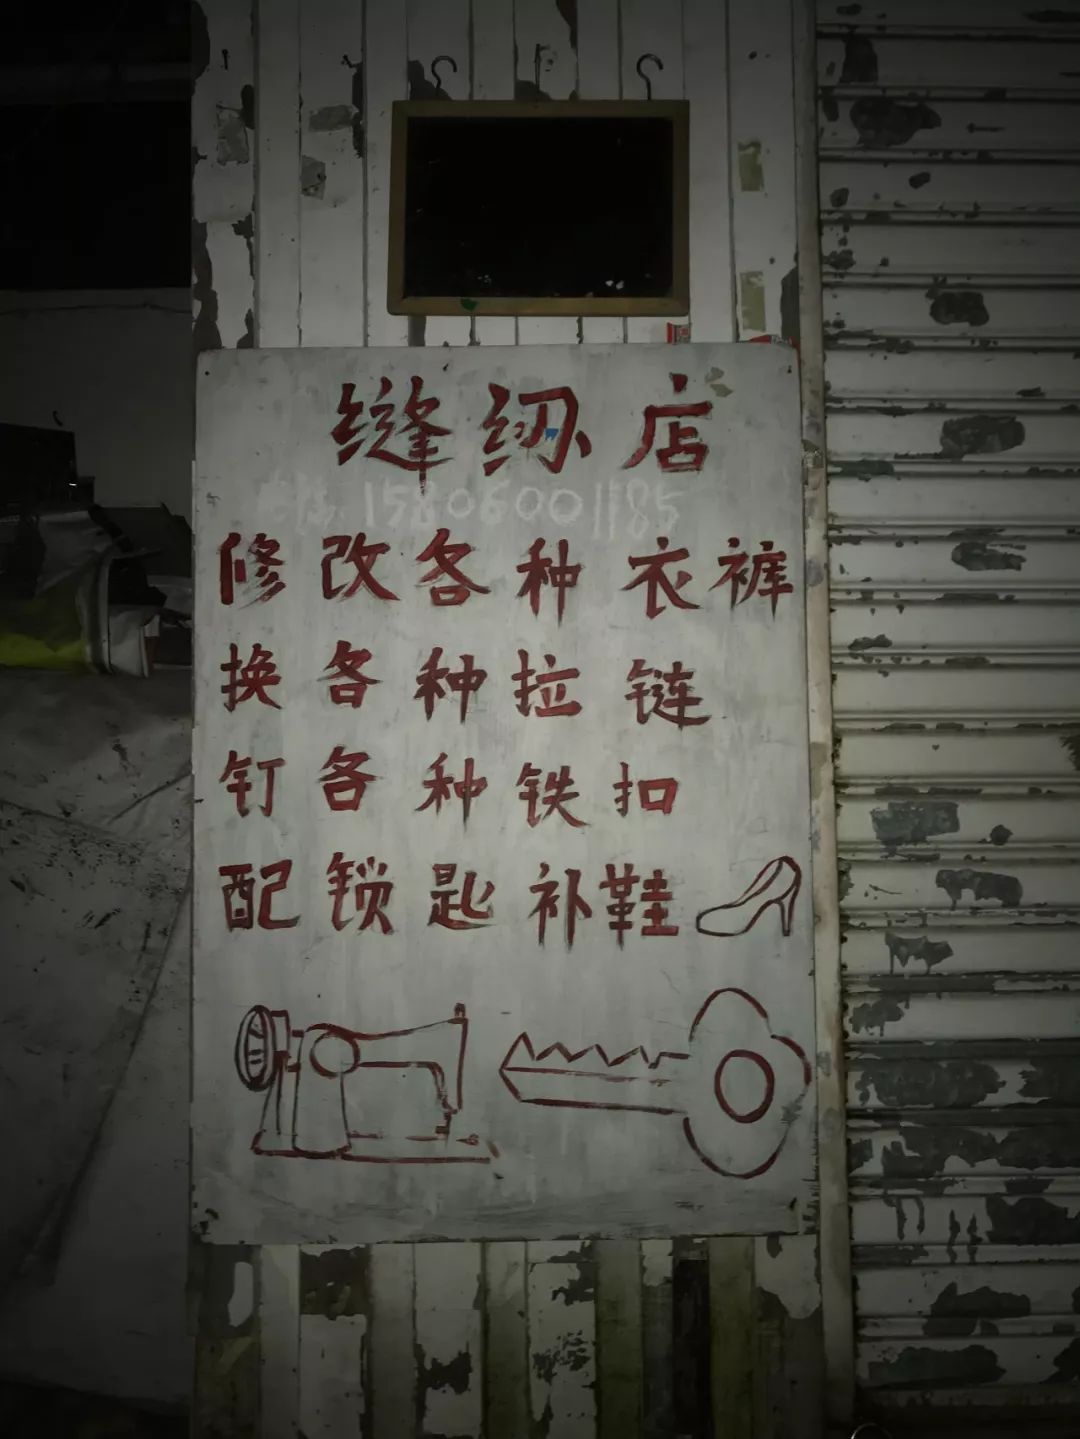 缝纫店
电话:15806001185
修改各种衣裤
换各种拉链
钉各种铁扣
配锁匙补鞋